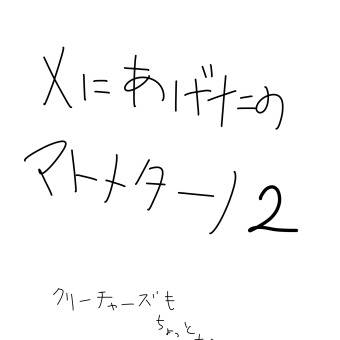 Xにあげたの
アトメターノ2
クリーチャーズも
ちょっと